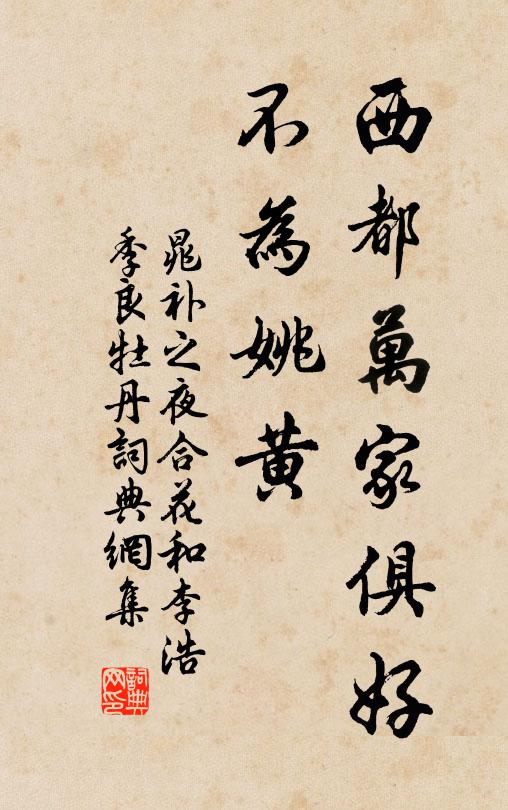 西都萬家俱好
不為姚黃
晁补之夜合花和李浩
季良牡丹詞典網集
詞典网印